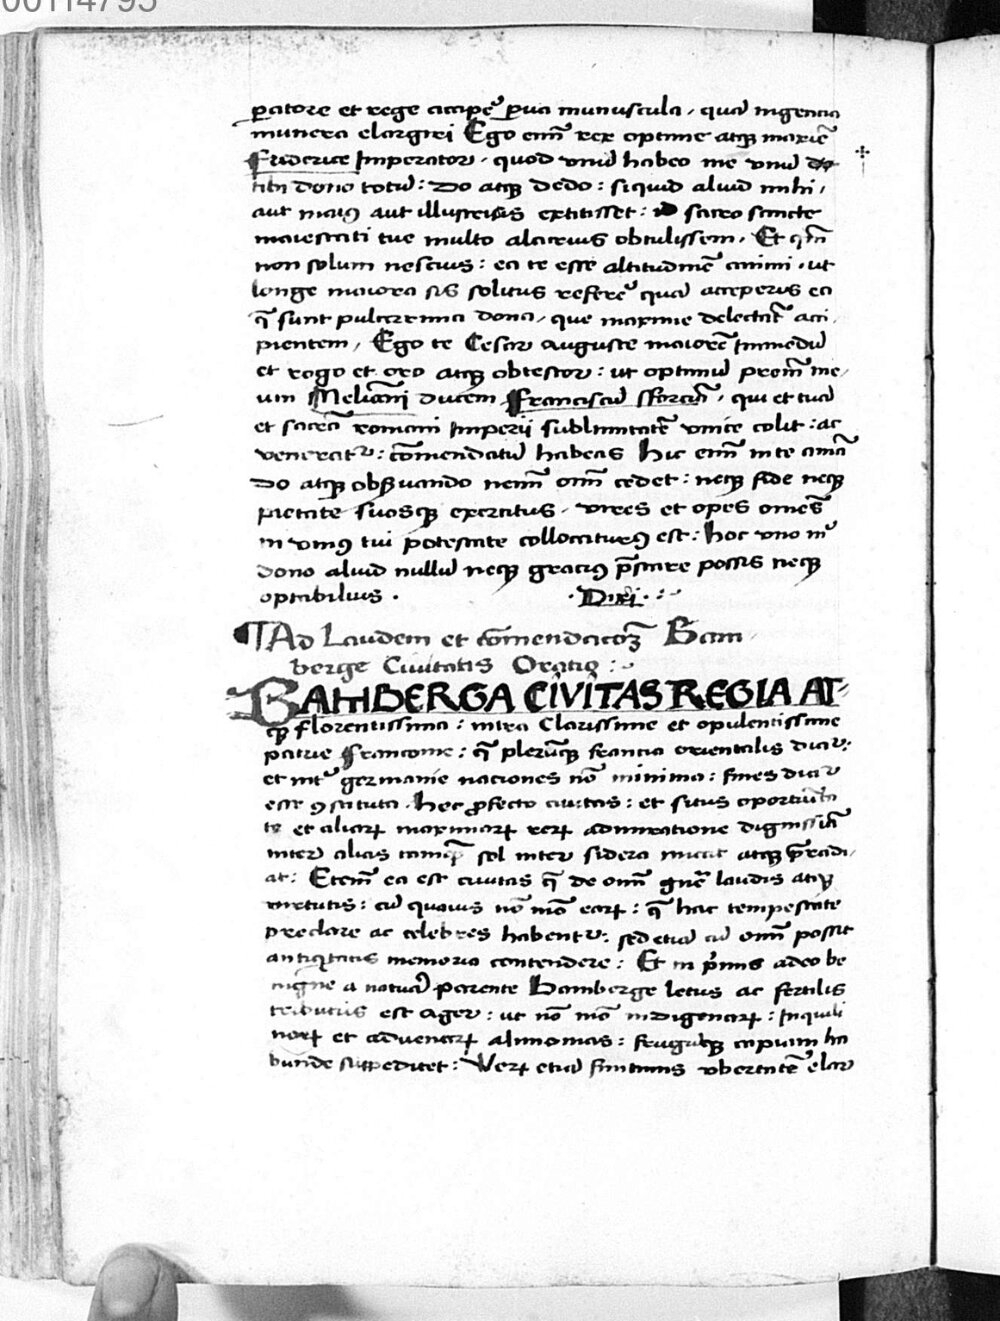 00114795
ꝑatore et rege accipe᷒ ꝑua munuscula, qua᷒ ingencia
munera elargiri Ego em̄ rex optime atqꝫ maxie᷒
Friderice Imperator, quod vnu᷒ habeo me vnu᷒ do
tibi dono totu᷒: Do atqꝫ dedo: siquid aliud mihi,
aut maiꝰ aut illustrius extitisset: id sacro sancte
maiestati tue multo alacrius obtulissem. Et qm̄
non solum nescius: ea te esse altitudine᷒ animi, ut
longe maiora sis solitus refere᷒ qua᷒ acceperis ea
q̄ sunt pulcerrima dona, que maxime delectāt acci,
pientem, Ego te Cesar auguste maiorē Immodu᷒
et rogo et oro atqꝫ obtestor: ut optimu᷒ prem̄ me,
um Meliani ducem Franciscu᷒ Sforcia᷒, qui et tua᷒
et sacra᷒ romani Imperij sublimitatē vnice colit: ac
venerat᷒: com̄endatu᷒ habeas Hic em̄ in te ama᷒
do atqꝫ obꝓuando nem̄ om̄ cedet: neqꝫ fide neqꝫ
pietate suosqꝫ exercitus, vires et opes omēs
in vniꝰ tui potestate collocaturꝰ est: hoc vno m᷒
dono aliud nullu᷒ neqꝫ graciꝰ p̄stare possis neqꝫ
optabilius. . Dixi.
¶Ad Laudem et com̄endacōꝫ Bam
berge Ciuitatis Oratio:
BAMBERGA CIVITAS REGIA AT⸗
qꝫ florentissima: intra Clarissime et opulentissime
patrie Francome: q̄ plerūqꝫ francia orientalis dicit᷒:
et int᷒ germanie naciones nō minima: fines dicit᷒
esse ꝯstituta. Hec ꝓfecto ciuitas: et situs oportunita
te et aliaꝝ maximaꝝ reꝝ admiratione dignissia᷒
inter alias tamq̄ sol inter sidera micat atqꝫ p̄radi,
at: Eteni᷒ ea est ciuitas q̄ de om̄ gn̄e laudis atqꝫ
virtutis: cu᷒ quauis nō mō eaꝝ: q̄ hac tempestate
preclare ac celebres habent᷒: sed etia᷒ cu᷒ om̄ possit
antiqͥtatis memoria contendere: Et in p̄mis adeo be
nigne a natura᷒ parente Bamberge letus ac fertilis
tributus est ager: ut nō mō indigenaꝝ: Inquili
noꝝ et aduenaꝝ alimonias: frugūqꝫ copiam ha
bunde suppeditet: Veꝝ etia᷒ finitimis vbertatē elar